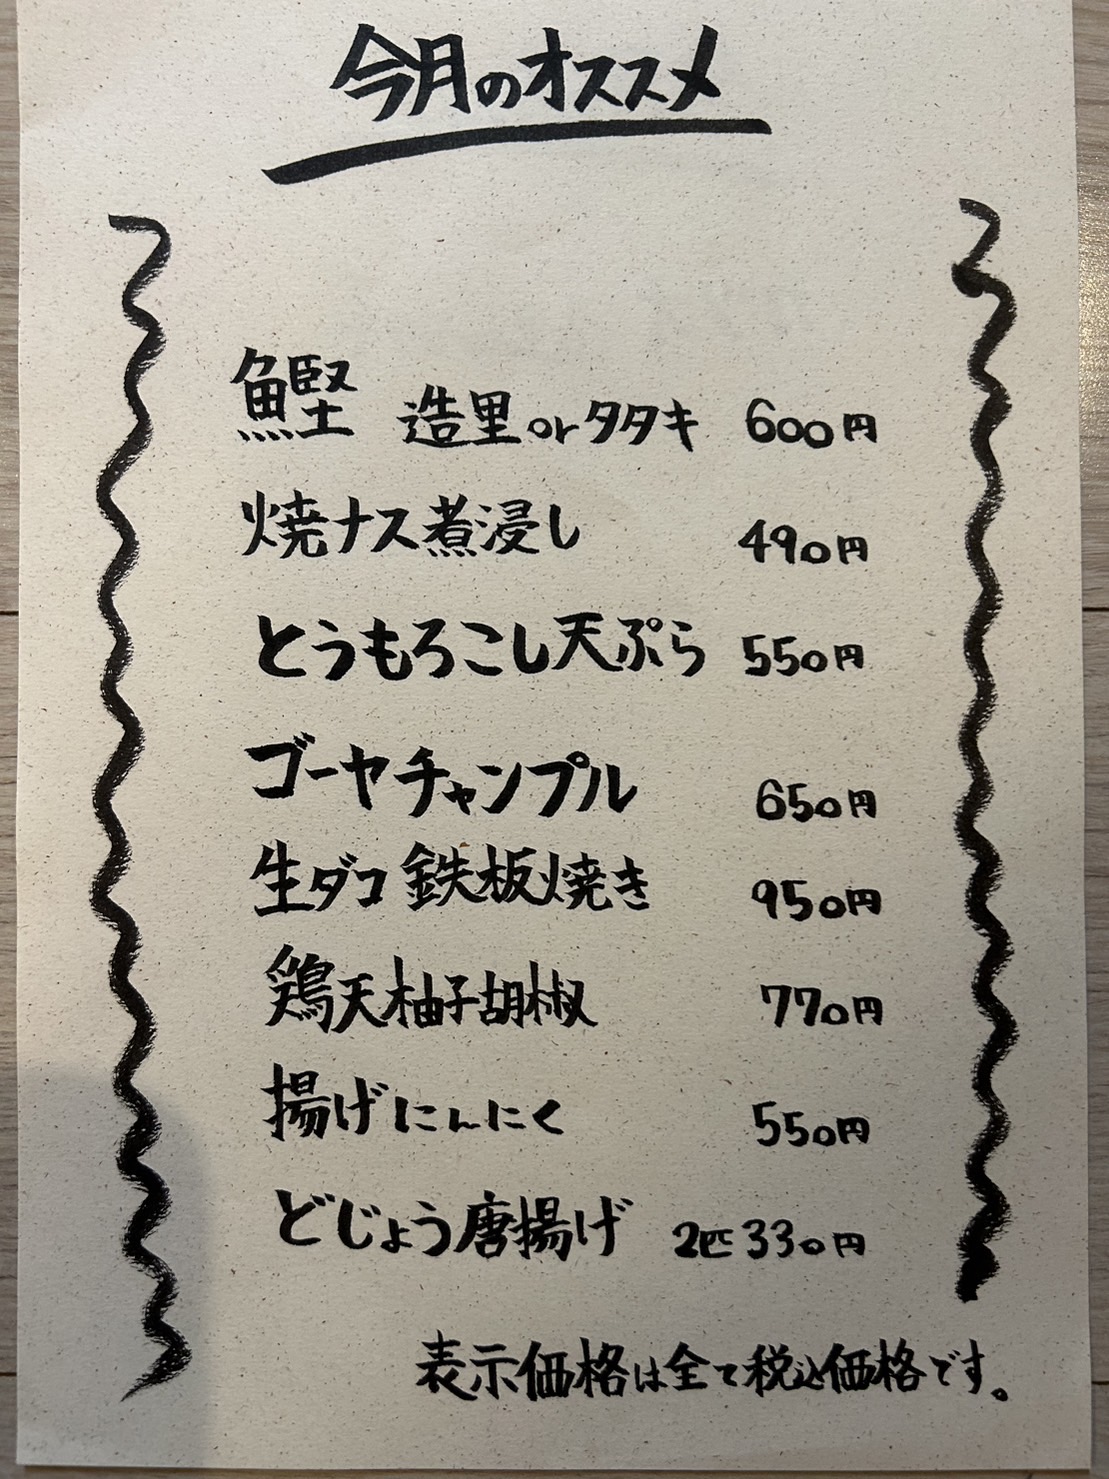 今月のオススメ
鰹 造里orタタキ 600円
焼ナス煮浸し 490円
とうもろこし天ぷら 550円
ゴーヤチャンプル 650円
生ダコ鉄板焼き 950円
鶏天柚子胡椒 770円
揚げにんにく 550円
どじょう唐揚げ 2匹330円
表示価格は全て税込価格です。